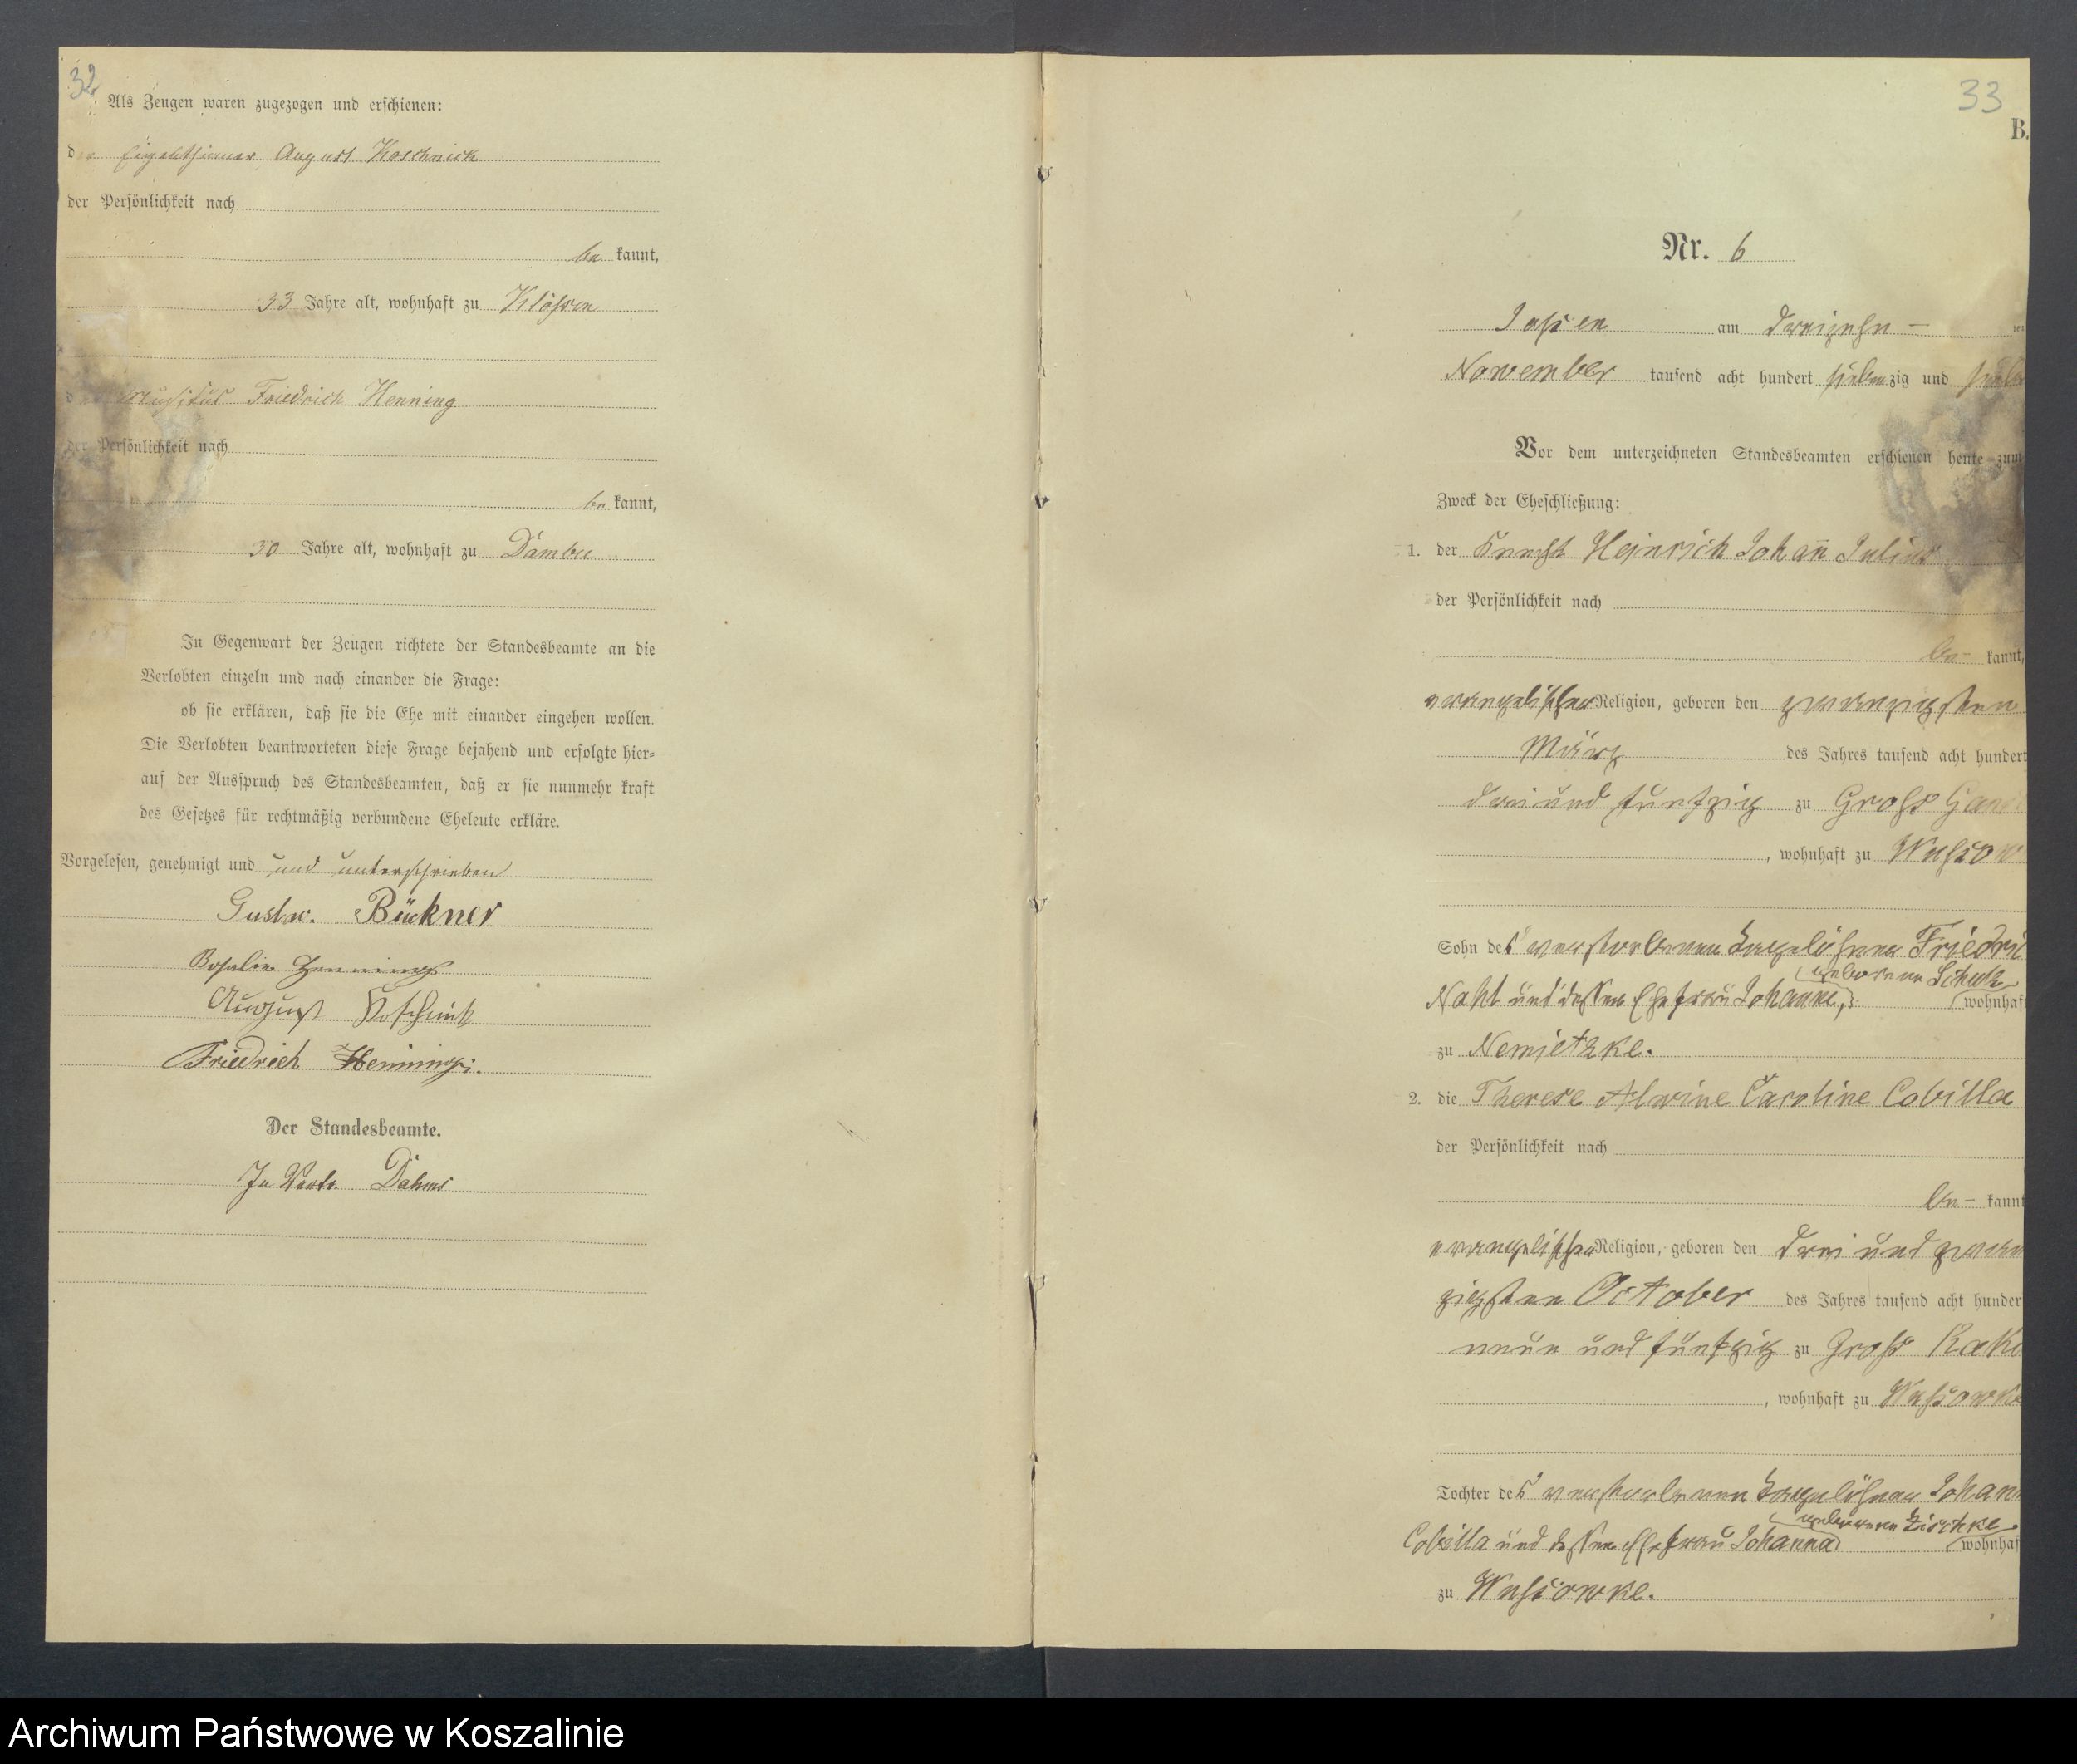 32
Als Zeugen waren zugezogen und erschienen:
der Eigenthümer August Koschnick
der Persönlichkeit nach
be kannt,
33 Jahre alt, wohnhaft zu Klössen
Friedrich Henning
der Persönlichkeit nach
be kannt,
50 Jahre alt, wohnhaft zu Dambee
In Gegenwart der Zeugen richtete der Standesbeamte an die
Verlobten einzeln und nach einander die Frage:
ob sie erklären, daß sie die Ehe mit einander eingehen wollen.
Die Verlobten beantworteten diese Frage bejahend und erfolgte hier-
auf der Ausspruch des Standesbeamten, daß er sie nunmehr kraft
des Gesetzes für rechtmäßig verbundene Eheleute erkläre.
Vorgelesen, genehmigt und und unterschrieben
Gustav. Bückner
Rosalie Henning
August Koschnick
Friedrich Henning.
Der Standesbeamte.
In Vertr. Dahms
33
B.
Nr. 6
Jassen am dreizehn – ten
November tausend acht hundert siebenzig und
Vor dem unterzeichneten Standesbeamten erschienen heute zum
Zweck der Eheschließung:
1. der Knecht Heinrich Johann Julius
der Persönlichkeit nach
be- kannt,
evangelischer Religion, geboren den zwanzigsten
März des Jahres tausend acht hundert
drei und funfzig zu Gross
, wohnhaft zu Wussow
Sohn des verstorbenen Tagelöhner Friedri
geborene Schulz
Naht und dessen Ehefrau Johanne, wohnhaf
zu Nemietzke.
2. die Therese Alwine Caroline Cobilla
der Persönlichkeit nach
be- kannt
evangelischer Religion, geboren den drei und zwan
zigsten October des Jahres tausend acht hunder
neun und funfzig zu Gross Rak
, wohnhaft zu Wussowke
Tochter des verstorbenen Tagelöhner Johann
geborene Zischke
Cobilla und dessen Ehefrau Johanna wohnhaf
zu Wussowke.
Archiwum Państwowe w Koszalinie